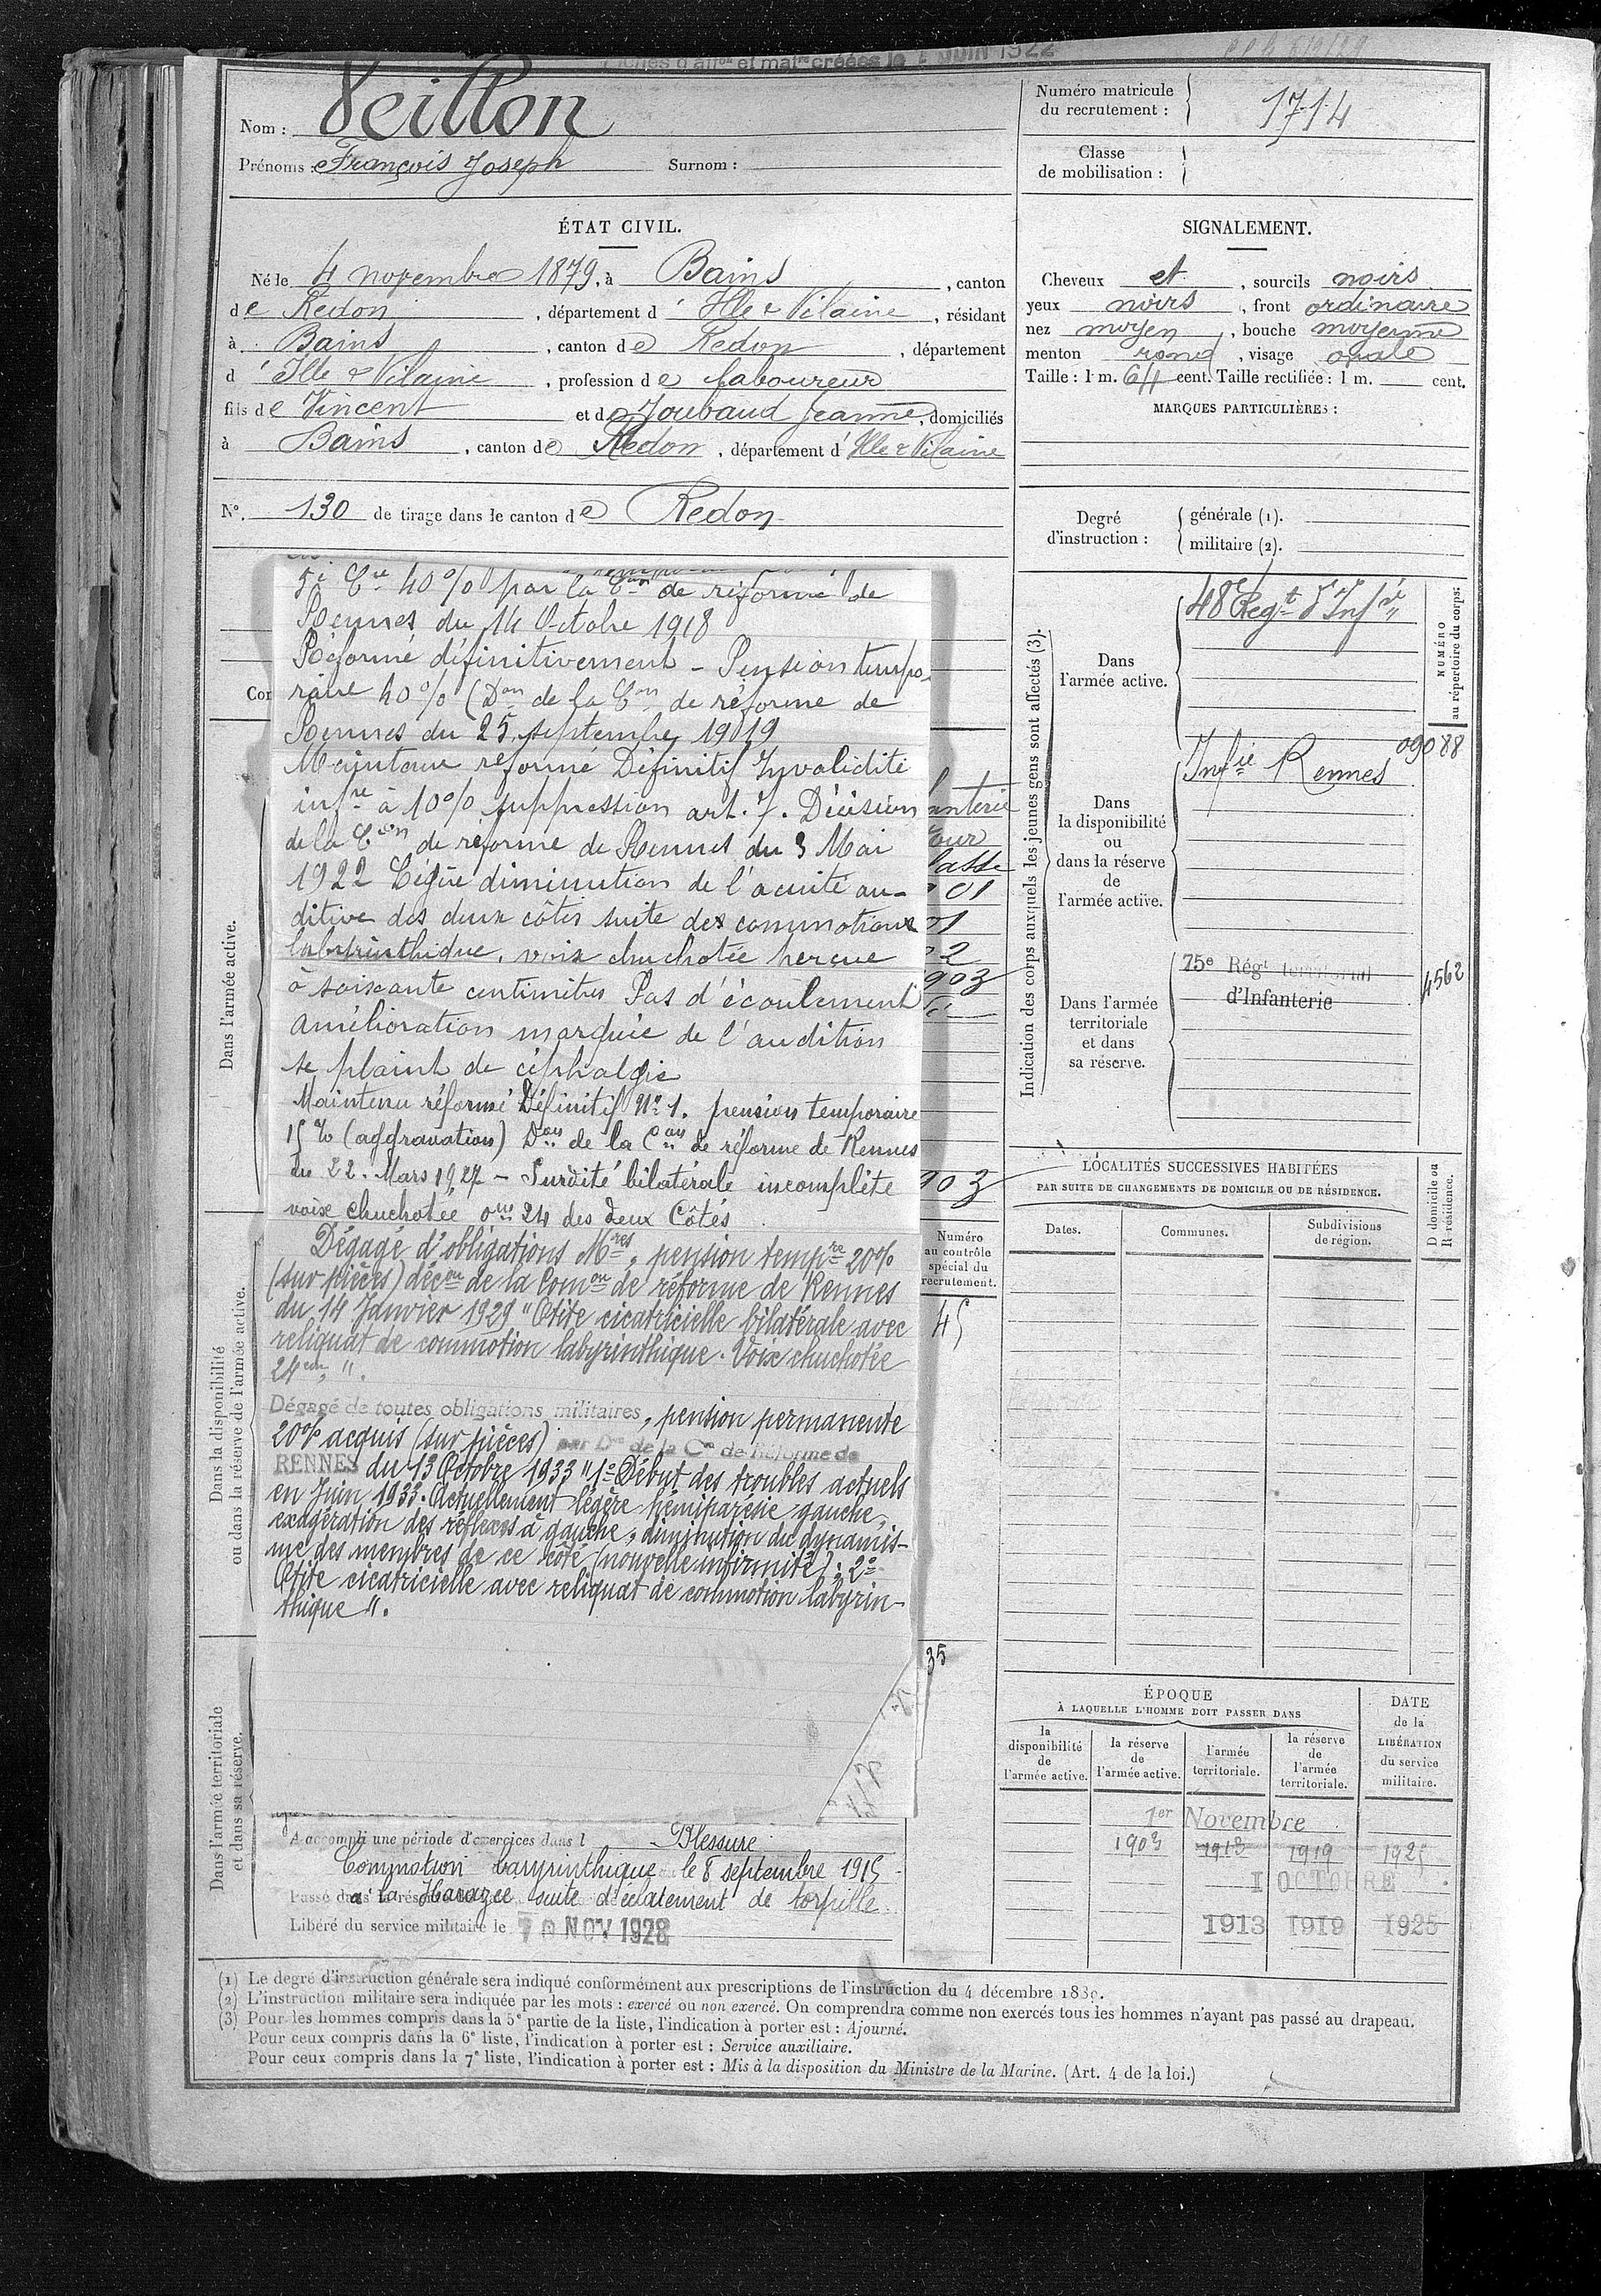 Fiches d'affon et matre créées le 1 JUIN 1922
Nom : Veillon
Prénoms : François Joseph Surnom :
Numéro matricule
du recrutement : 1714
Classe
de mobilisation :
ÉTAT CIVIL.
Né le 4 novembre 1879, à Bains, canton
de Redon, département d'Ille & Vilaine, résidant
à Bains, canton de Redon, département
d'Ille & Vilaine, profession de laboureur
fils de Vincent et de Joubaud Jeanne, domiciliés
à Bains, canton de Redon, département d'Ille & Vilaine
N° 130 de tirage dans le canton de Redon
SIGNALEMENT.
Cheveux et, sourcils noirs
yeux noirs, front ordinaire
nez moyen, bouche moyenne
menton rond, visage ovale
Taille : 1 m. 64 cent. Taille rectifiée : 1 m. cent.
MARQUES PARTICULIÈRES :
Degré
d'instruction :
générale (1).
militaire (2).
Cor
5e Cie 40% par la Con de réforme de
Rennes du 14 Octobre 1918
Réformé définitivement - Pension tempo-
raire 40% (Don de la Con de réforme de
Rennes du 25 septembre 1919
Maintenu réformé Définitif Invalidité
infre à 10% suppression art. 7. Décision
de la Con de réforme de Rennes du 3 Mai
1922 Légère diminution de l'acuité au-
ditive des deux côtés suite des commotions
labyrinthique, voix chuchotée perçue
à soixante centimètres Pas d'écoulement
amélioration marquée de l'audition
se plaint de céphalgie
Maintenu réformé Définitif No 1. pension temporaire
15% (aggravation) Don de la Con de réforme de Rennes
du 22 Mars 1927 - Surdité bilatérale incomplète
voix chuchotée 0m 24 des deux Côtés
Dégagé d'obligations Mres, pension tempre 20%
(sur pièces) décon de la Comon de réforme de Rennes
du 14 Janvier 1929 "Otite cicatricielle bilatérale avec
reliquat de commotion labyrinthique. Voix chuchotée
24cm".
Dégagé de toutes obligations militaires, pension permanente
20% acquis (sur pièces) par Don de la Con de Réforme de
RENNES du 13 Octobre 1933 "1° Début des troubles actuels
en Juin 1933. Actuellement légère hémiparésie gauche,
exagération des réflexes à gauche, diminution du dynamis-
me des membres de ce côté (nouvelle infirmité) ; 2°
Otite cicatricielle avec reliquat de commotion labyrin-
thique".
Dans l'armée active.
Dans la disponibilité
ou dans la réserve de l'armée active.
Dans l'armée territoriale
et dans sa réserve.
anterie
our
lasse
01
01
2
903
903
Numéro
au contrôle
spécial du
recrutement.
45
35
A accompli une période d'exercices dans l Blessure
Commotion labyrinthique le 8 septembre 1915
à la Harazée suite d'éclatement de torpille.
Libéré du service militaire le 10 NOV 1928
Indication des corps auxquels les jeunes gens sont affectés (3).
Dans
l'armée active.
48e Regt d'Infie
NUMÉRO
au répertoire du corps.
Dans
la disponibilité
ou
dans la réserve
de
l'armée active.
Infie Rennes 09088
Dans l'armée
territoriale
et dans
sa réserve.
75e Régt territorial
d'Infanterie
4562
LOCALITÉS SUCCESSIVES HABITÉES
PAR SUITE DE CHANGEMENTS DE DOMICILE OU DE RÉSIDENCE.
Dates. Communes. Subdivisions
de région.
D domicile ou
R résidence.
ÉPOQUE
À LAQUELLE L'HOMME DOIT PASSER DANS
la
disponibilité
de
l'armée active.
la réserve
de
l'armée active.
l'armée
territoriale.
la réserve
de
l'armée
territoriale.
DATE
de la
LIBÉRATION
du service
militaire.
1er Novembre
1903 1913 1919 1925
1 OCTOBRE
1913 1919 1925
(1) Le degré d'instruction générale sera indiqué conformément aux prescriptions de l'instruction du 4 décembre 1889.
(2) L'instruction militaire sera indiquée par les mots : exercé ou non exercé. On comprendra comme non exercés tous les hommes n'ayant pas passé au drapeau.
(3) Pour les hommes compris dans la 5e partie de la liste, l'indication à porter est : Ajourné.
Pour ceux compris dans la 6e liste, l'indication à porter est : Service auxiliaire.
Pour ceux compris dans la 7e liste, l'indication à porter est : Mis à la disposition du Ministre de la Marine. (Art. 4 de la loi.)